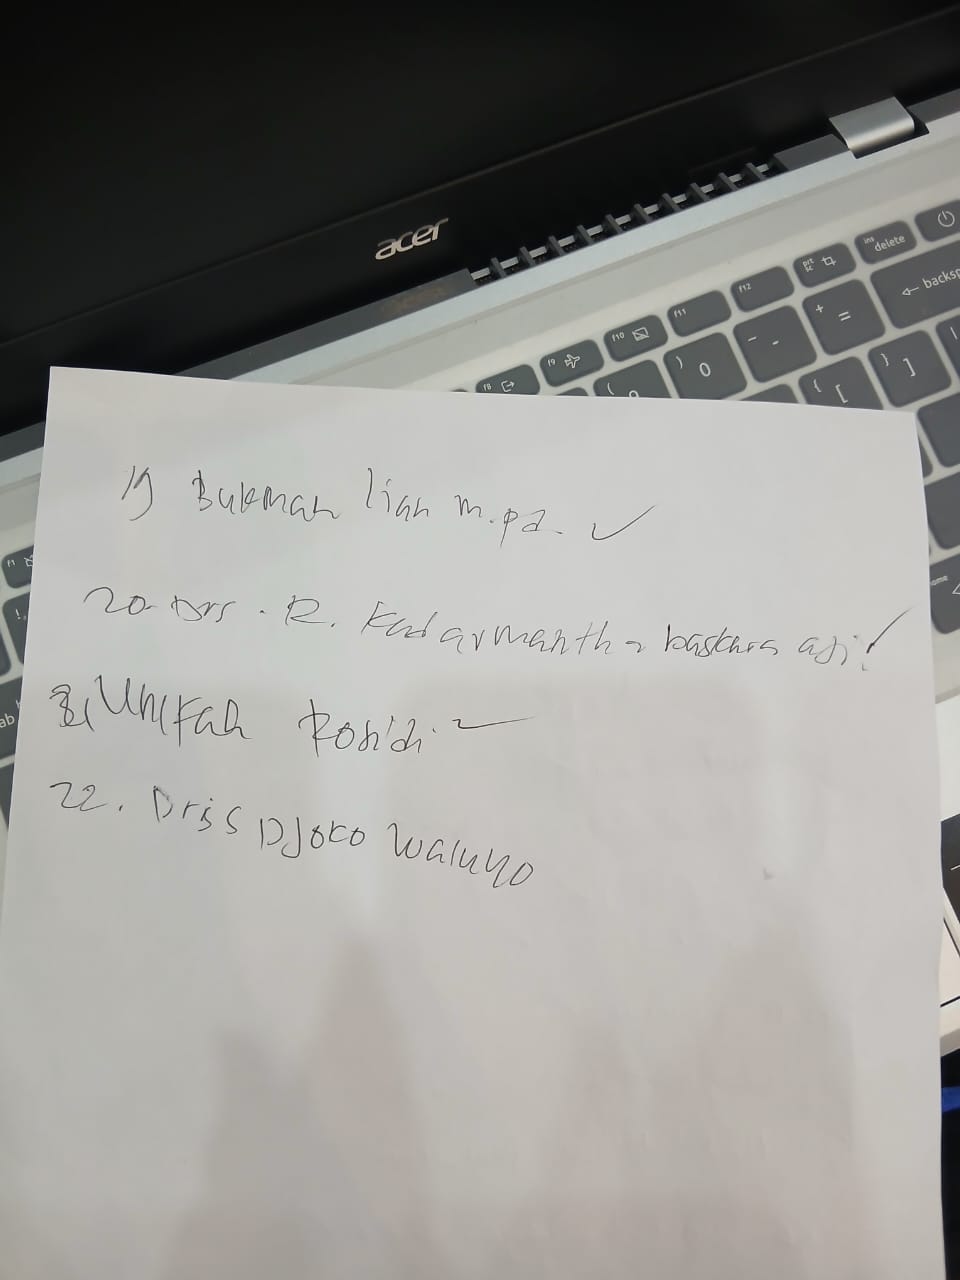 acer
ins delete
prt sc
f12
f11
f10
f9
f8
← backsp
+ =
_ -
) 0
(
{ [
} ]
f1
!
home
ab
19 Bukman lian m.pd. ✓
20. Drs. R. Kadarmantha baskara aji ✓
Unifah Rosidi ✓
22. Drs Djoko Waluyo